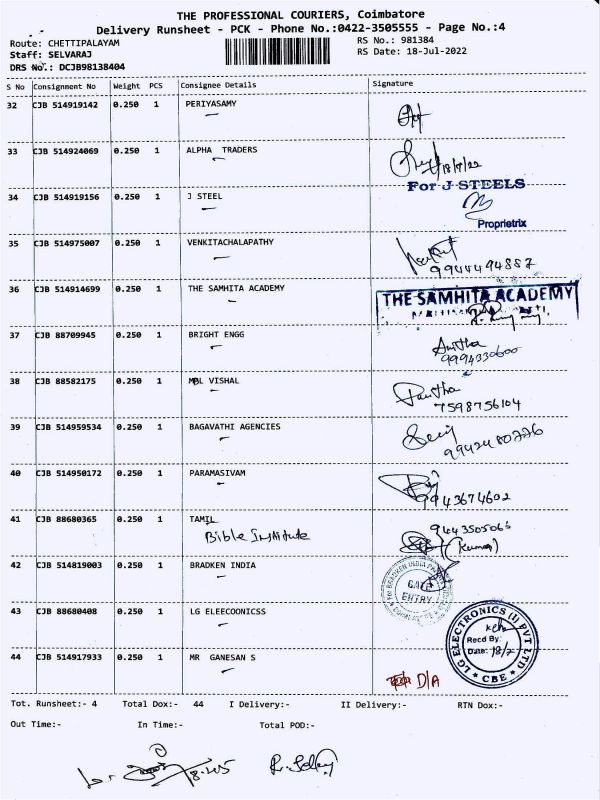 THE PROFESSIONAL COURIERS, Coimbatore
Delivery Runsheet - PCK - Phone No.:0422-3505555 - Page No.:4
Route: CHETTIPALAYAM RS No.: 981384
Staff: SELVARAJ RS Date: 18-Jul-2022
DRS No.: DCJB98138404
S No Consignment No Weight PCS Consignee Details Signature
32 CJB 514919142 0.250 1 PERIYASAMY
33 CJB 514924069 0.250 1 ALPHA TRADERS 18/7/22
For J STEELS
34 CJB 514919156 0.250 1 J STEEL
Proprietrix
35 CJB 514975007 0.250 1 VENKITACHALAPATHY
9944494887
36 CJB 514914699 0.250 1 THE SAMHITA ACADEMY THE SAMHITA ACADEMY
37 CJB 88709945 0.250 1 BRIGHT ENGG Anitha
9994330600
38 CJB 88582175 0.250 1 MBL VISHAL
7598756104
39 CJB 514959534 0.250 1 BAGAVATHI AGENCIES
9942480776
40 CJB 514950172 0.250 1 PARAMASIVAM
9943674602
41 CJB 88680365 0.250 1 TAMIL 9443505065
Bible Institute (Kumar)
42 CJB 514819003 0.250 1 BRADKEN INDIA For BRADKEN INDIA
GATE
ENTRY
43 CJB 88680408 0.250 1 LG ELEECOONICSS
LG ELECTRONICS (I) PVT LTD
Recd By:
Date: 18/7
CBE
44 CJB 514917933 0.250 1 MR GANESAN S
D/A
Tot. Runsheet:- 4 Total Dox:- 44 I Delivery:- II Delivery:- RTN Dox:-
Out Time:- In Time:- Total POD:-